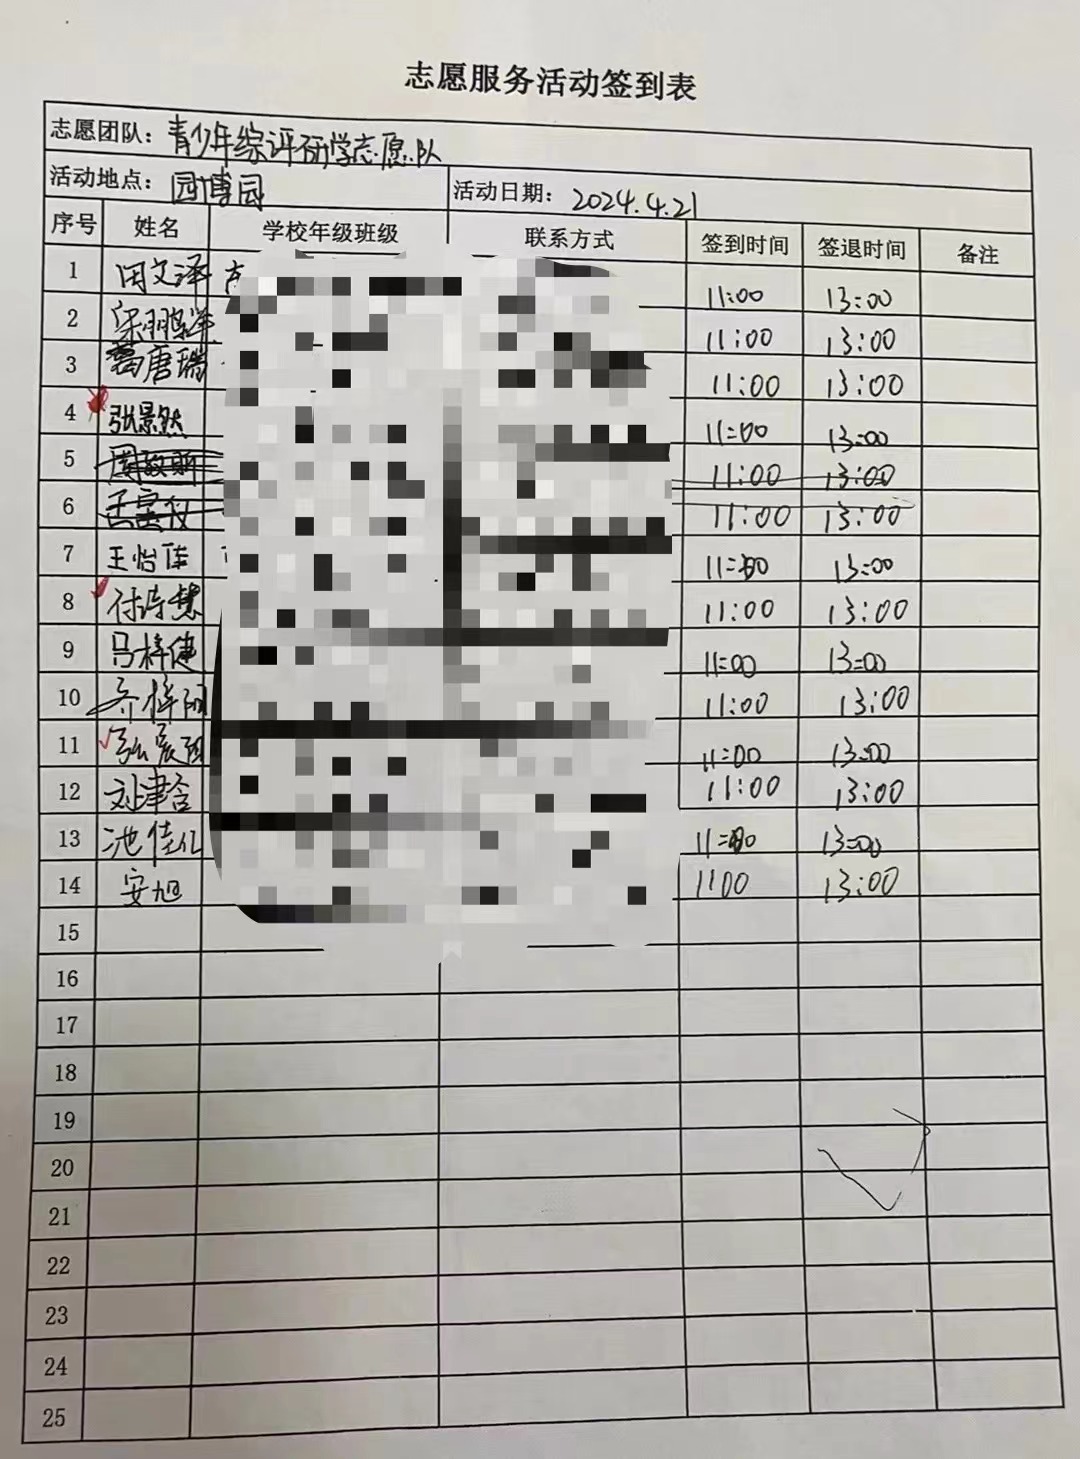 志愿服务活动签到表
志愿团队：青少年综评研学志愿队
活动地点：园博园 活动日期：2024.4.21
序号 姓名 学校年级班级 联系方式 签到时间 签退时间 备注
1 田文泽 11:00 13:00
2 梁鹏 11:00 13:00
3 葛唐瑞 11:00 13:00
4 张景然 11:00 13:00
5 11:00 13:00
6 11:00 13:00
7 王怡佳 11:00 13:00
8 付诗慧 11:00 13:00
9 马梓健 11:00 13:00
10 11:00 13:00
11 11:00 13:00
12 刘津含 11:00 13:00
13 池佳 11:00 13:00
14 安旭 1100 13:00
15
16
17
18
19
20
21
22
23
24
25